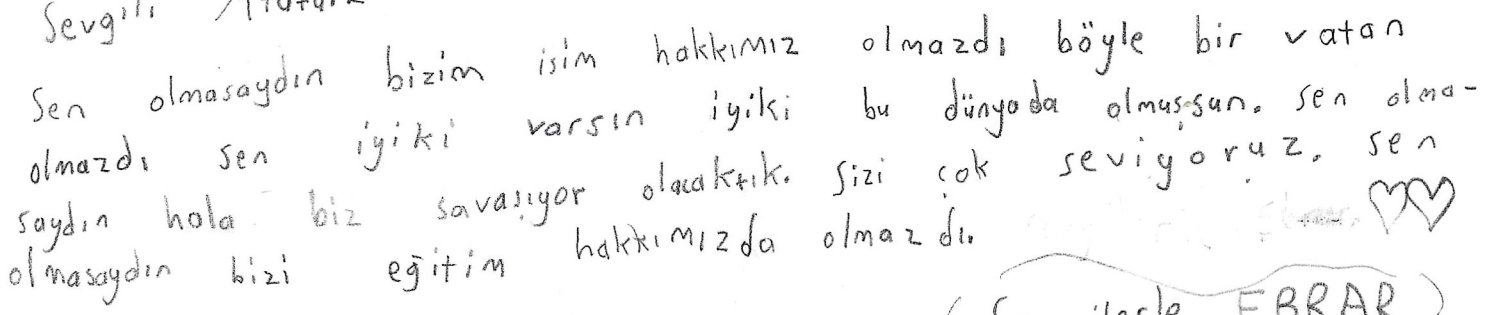 Sevgili
Sen olmasaydın bizim isim hakkımız olmazdı böyle bir vatan
olmazdı sen iyiki varsın iyiki bu dünyada olmuşsun. sen olma-
saydın hola biz savaşıyor olacaktık. Sizi çok seviyoruz. sen
olmasaydın bizi eğitim hakkımızda olmazdı.
EBRAR